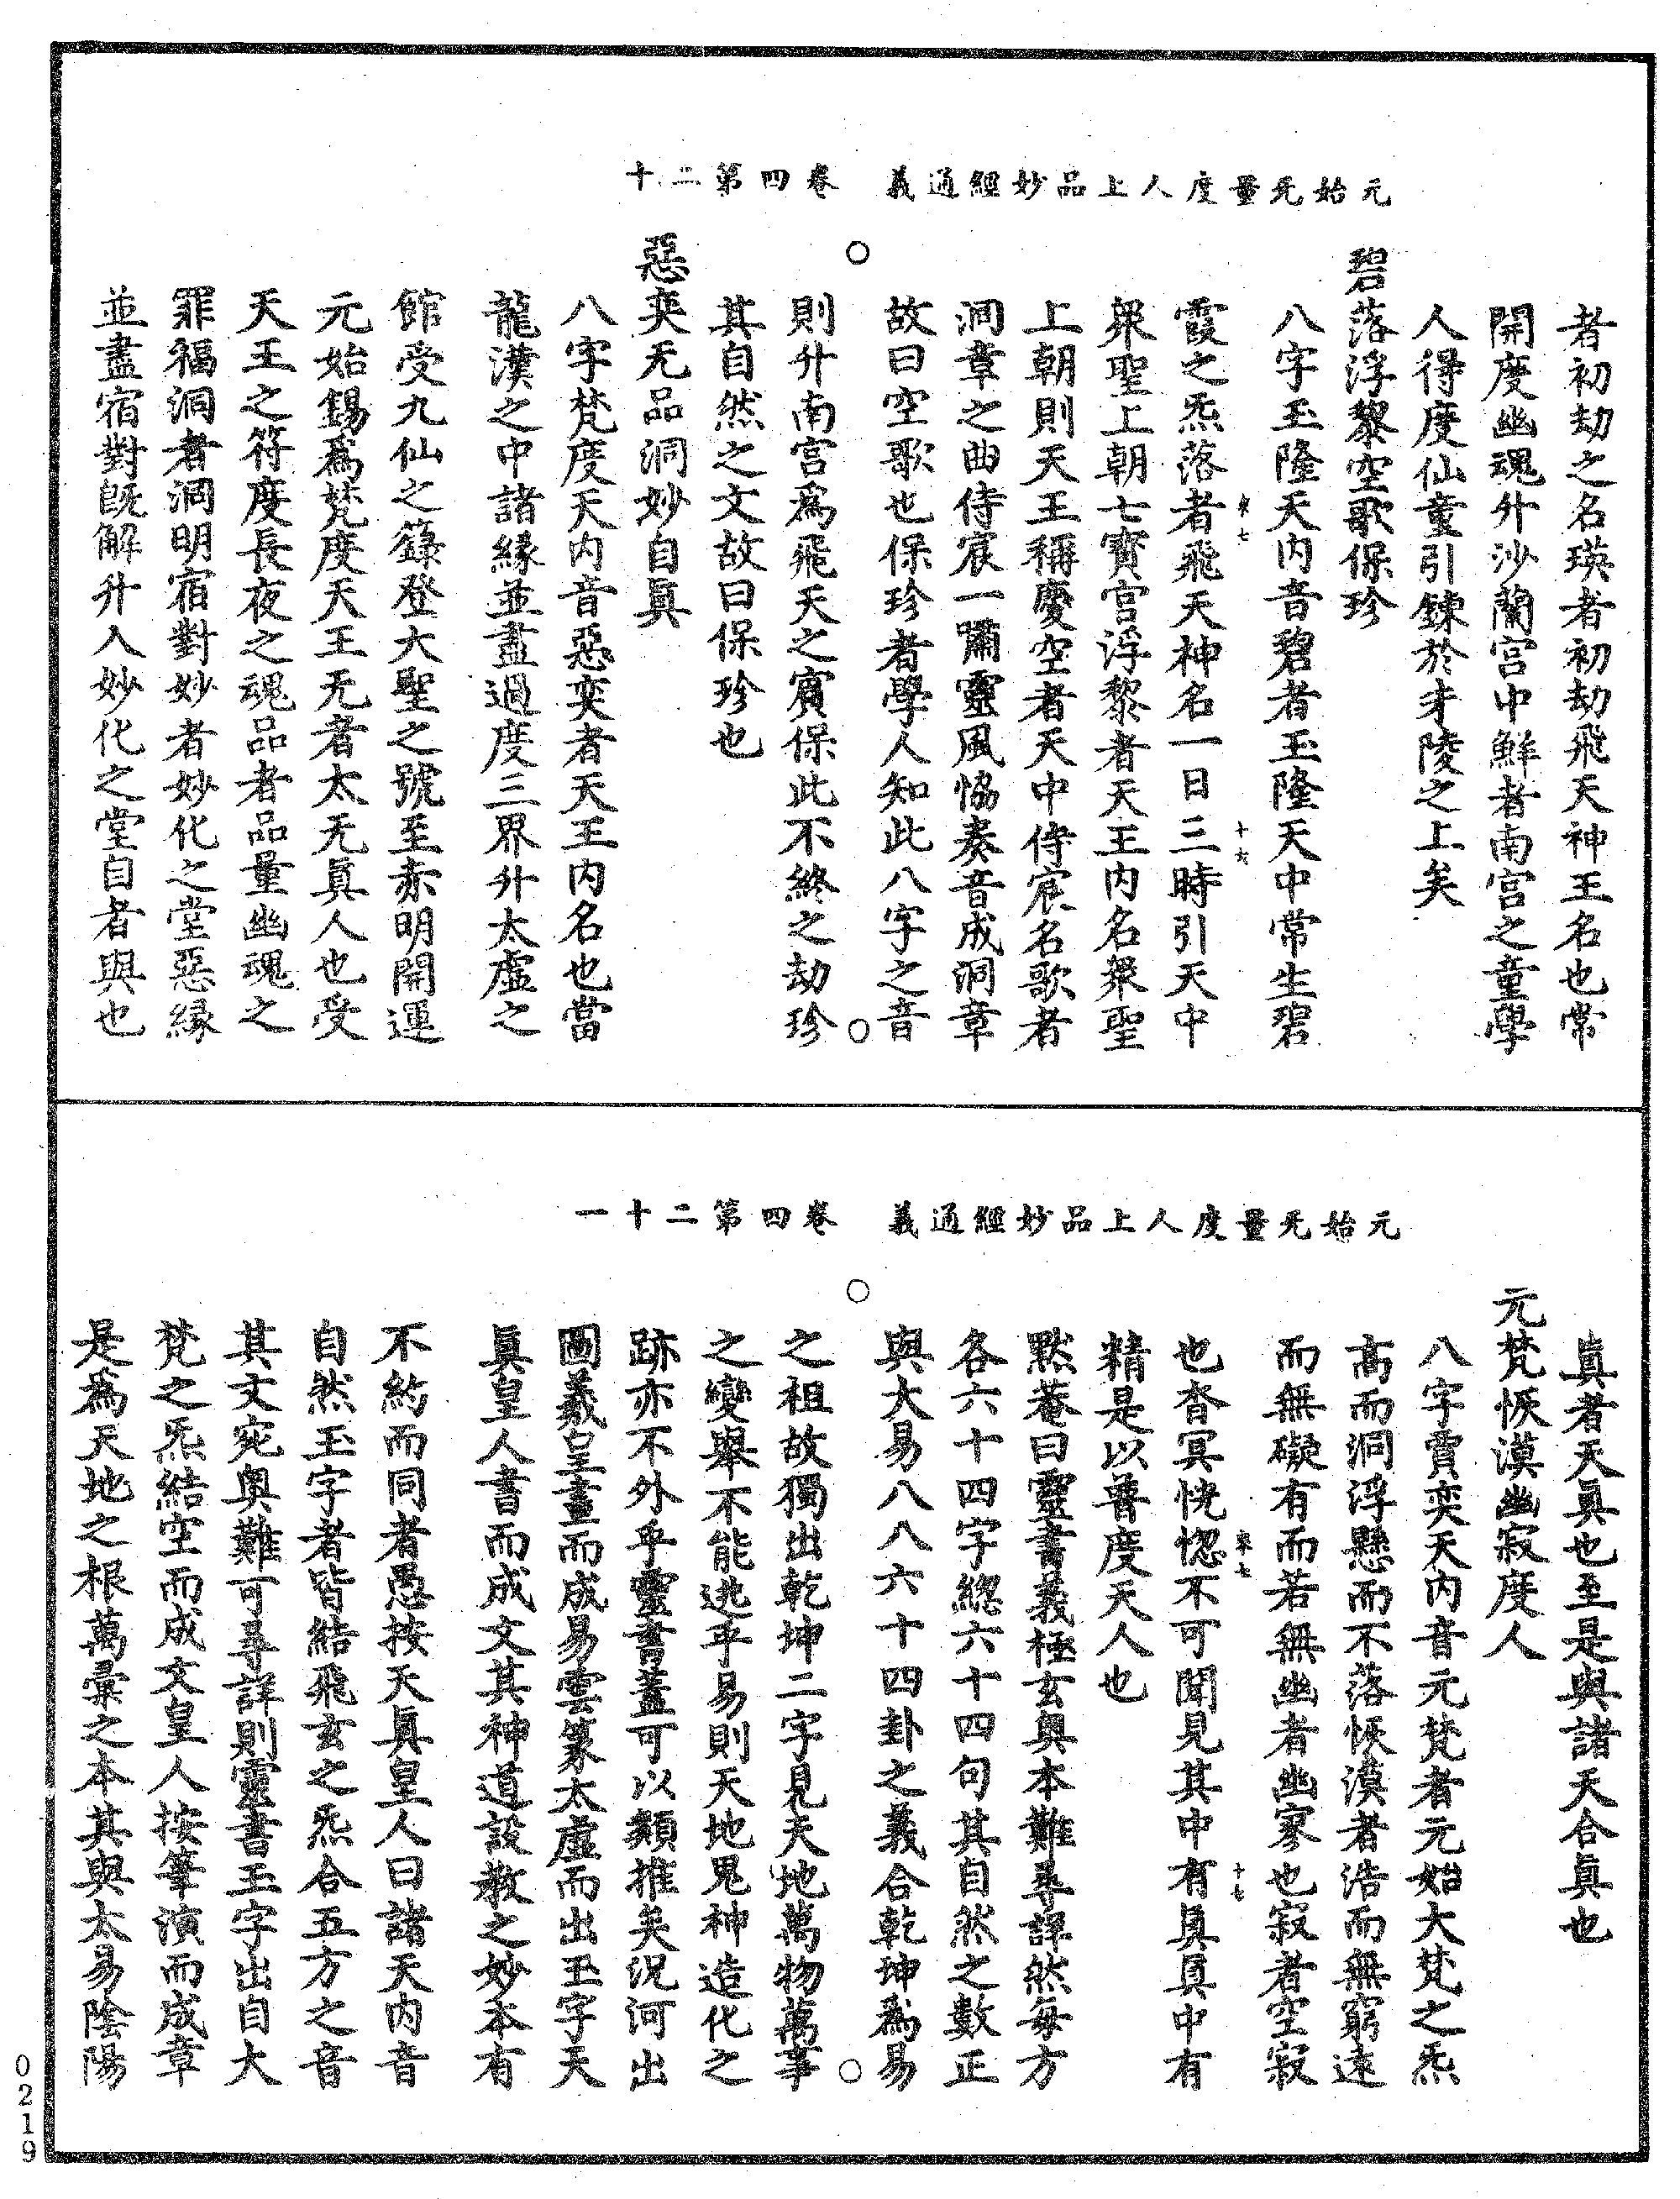 元始无量度人上品妙經通義　卷四第二十
者初劫之名瑛者初劫飛天神王名也常
開度幽魂升沙蘭宮中鮮者南宮之童學
人得度仙童引鍊於才陵之上矣
碧落浮黎空歌保珍
八字玉隆天內音碧者玉隆天中常生碧
霞之炁落者飛天神名一日三時引天中
衆聖上朝七寶宮浮黎者天王內名衆聖
上朝則天王稱慶空者天中侍宸名歌者
洞章之曲侍宸一嘯靈風恊奏音成洞章
故曰空歌也保珍者學人知此八字之音
則升南宮爲飛天之賓保此不終之劫珍
其自然之文故曰保珍也
惡奕无品洞妙自眞
八字梵度天內音惡奕者天王內名也當
龍漢之中諸緣並盡過度三界升太虛之
館受九仙之籙登大聖之號至赤明開運
元始錫爲梵度天王无者太无眞人也受
天王之符度長夜之魂品者品量幽魂之
罪福洞者洞明宿對妙者妙化之堂惡緣
並盡宿對旣解升入妙化之堂自者與也
元始无量度人上品妙經通義　卷四第二十一
眞者天眞也至是與諸天合眞也
元梵恢漠幽寂度人
八字賈奕天內音元梵者元始大梵之炁
高而洞浮懸而不落恢漠者浩而無窮遠
而無礙有而若無幽者幽寥也寂者空寂
也杳冥恍惚不可聞見其中有眞眞中有
精是以普度天人也
默菴曰靈書義極玄奧本難尋譯然每方
各六十四字總六十四句其自然之數正
與大易八八六十四卦之義合乾坤爲易
之祖故獨出乾坤二字見天地萬物萬事
之變舉不能逃乎易則天地鬼神造化之
跡亦不外乎靈書蓋可以類推矣況河出
圖羲皇畫而成易雲篆太虛而出玉字天
眞皇人書而成文其神道設教之妙本有
不約而同者愚按天眞皇人曰諸天內音
自然玉字者皆結飛玄之炁合五方之音
其文宛奧難可尋詳則靈書玉字出自大
梵之炁結空而成文皇人按筆演而成章
是爲天地之根萬彙之本其與太易陰陽
0219